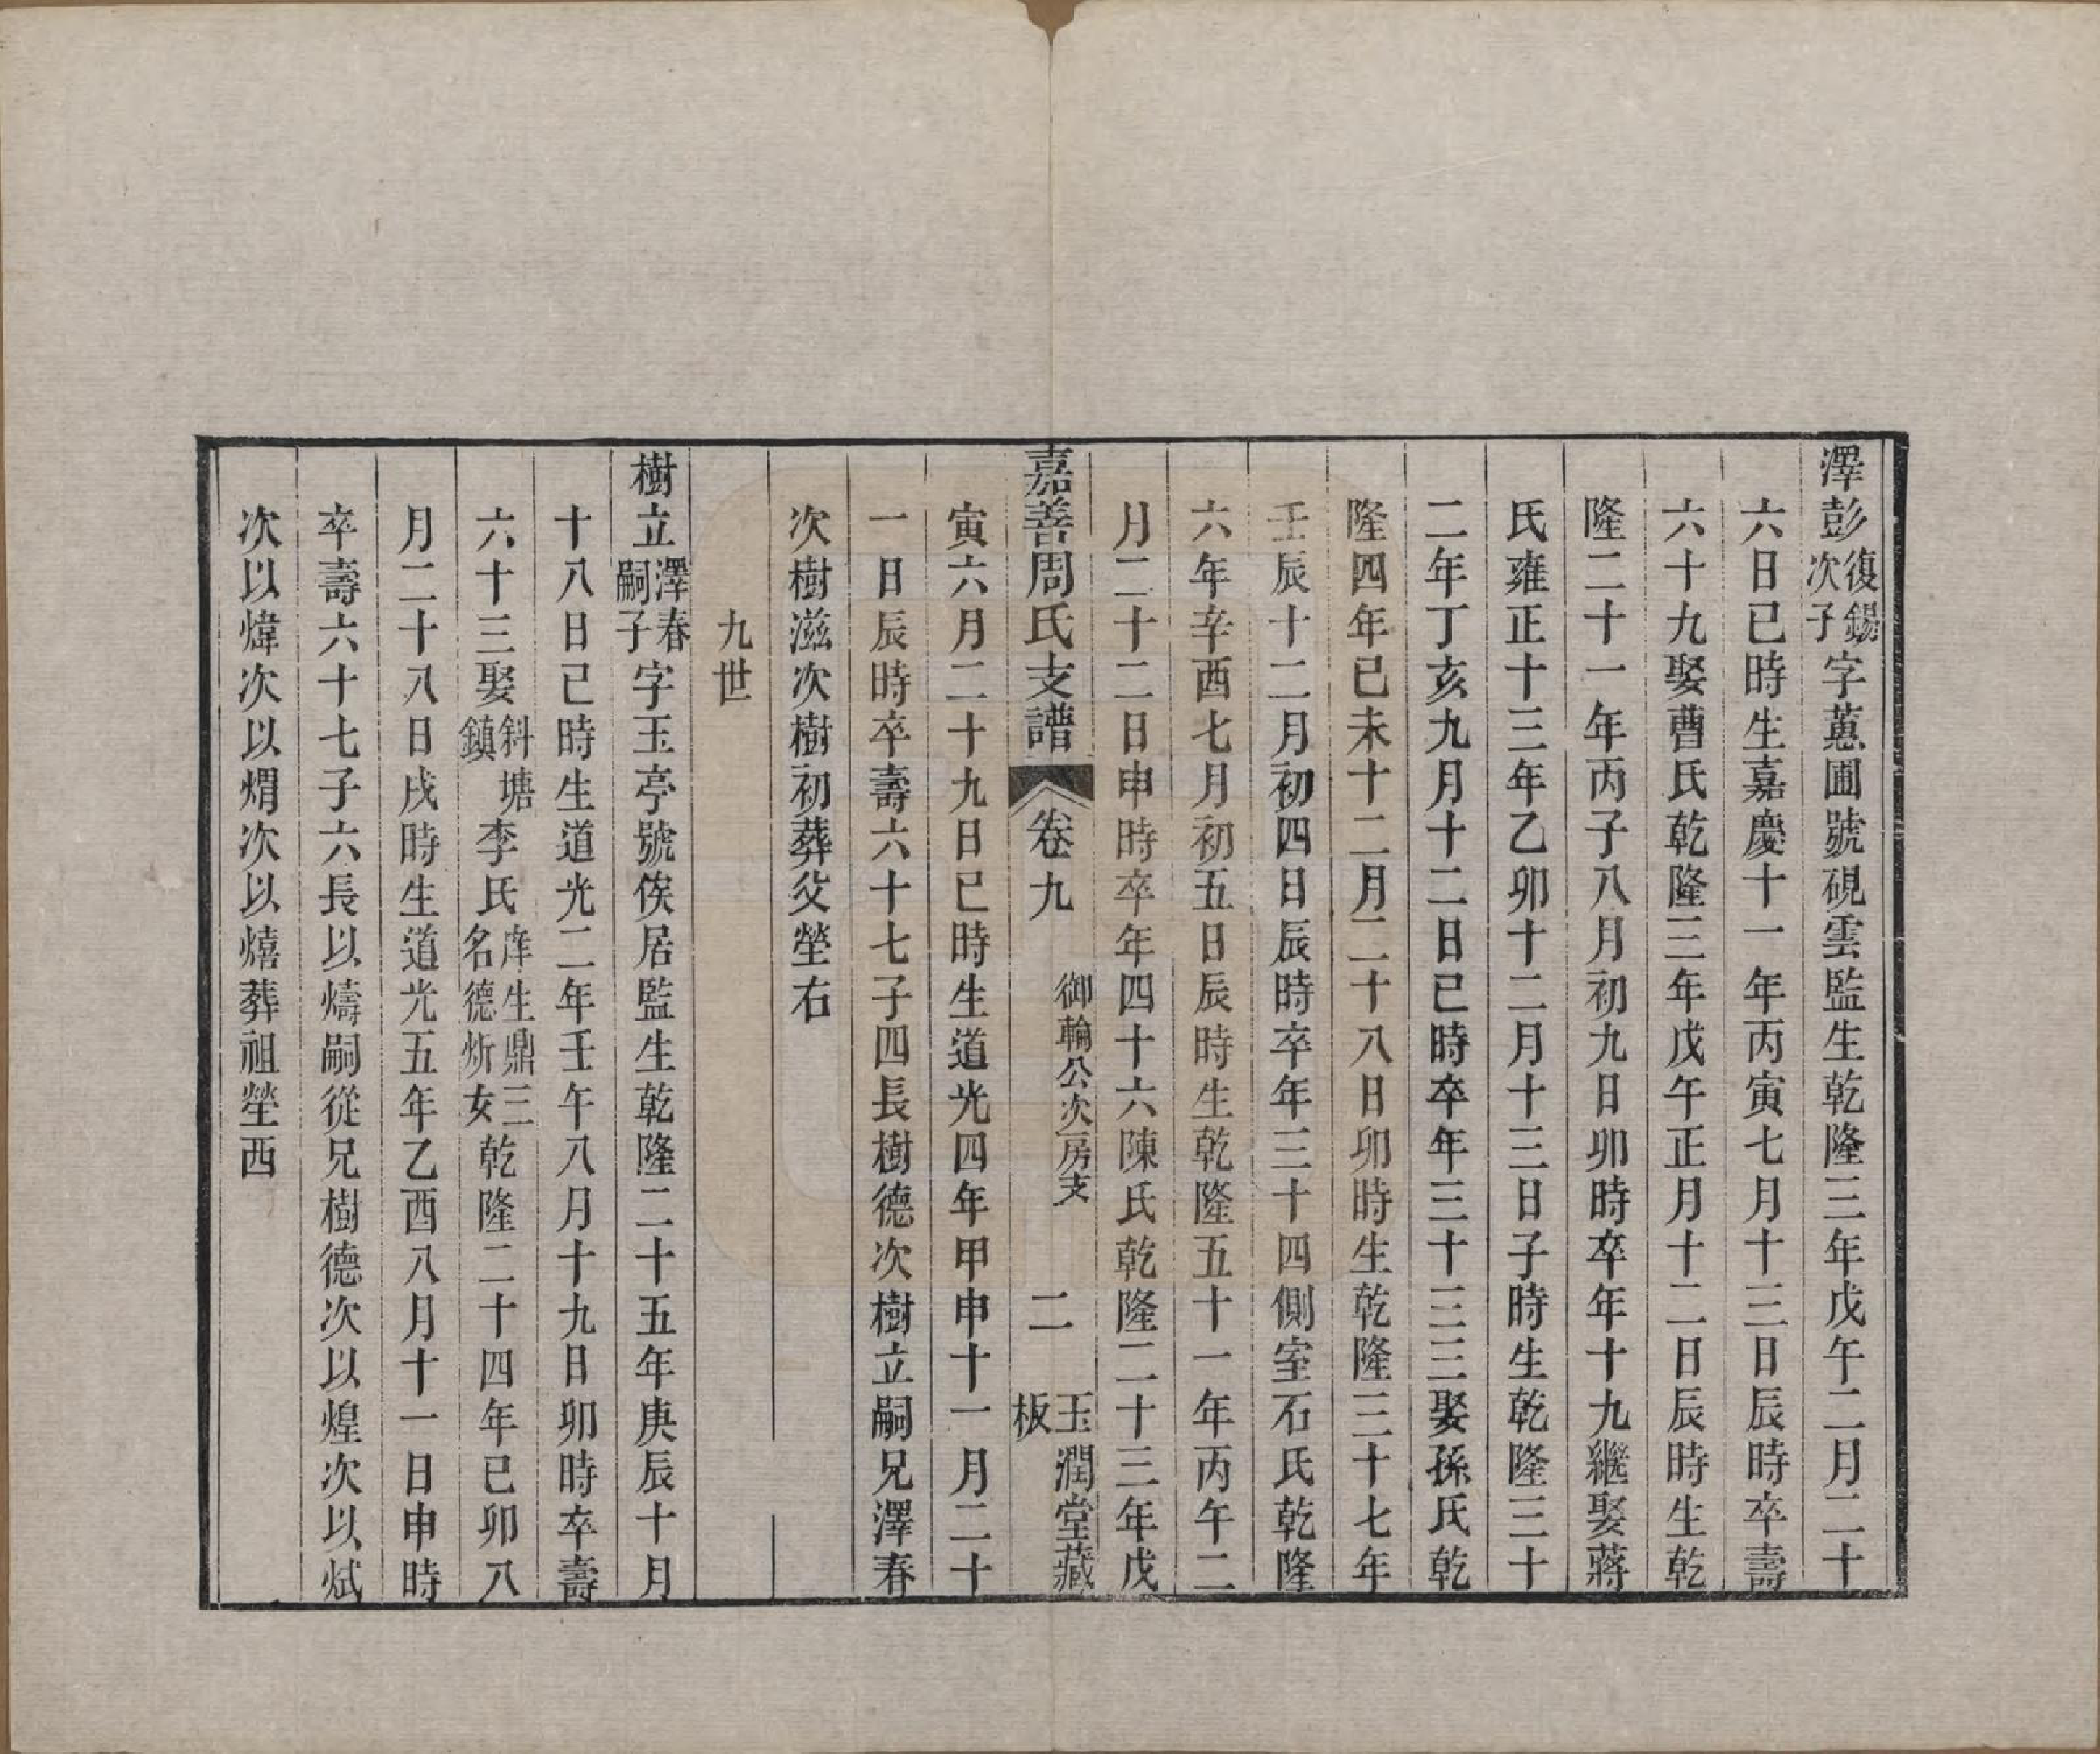 澤彭復錫次子字蕙圃號硯雲監生乾隆三年戊午二月二十
六日巳時生嘉慶十一年丙寅七月十三日辰時卒壽
六十九娶曹氏乾隆三年戊午正月十二日辰時生乾
隆二十一年丙子八月初九日卯時卒年十九繼娶蔣
氏雍正十三年乙卯十二月十三日子時生乾隆三十
二年丁亥九月十二日巳時卒年三十三三娶孫氏乾
隆四年己未十二月二十八日卯時生乾隆三十七年
壬辰十二月初四日辰時卒年三十四側室石氏乾隆
六年辛酉七月初五日辰時生乾隆五十一年丙午二
月二十二日申時卒年四十六陳氏乾隆二十三年戊
嘉善周氏支譜 卷九 御輪公次房支 二 玉潤堂藏板
寅六月二十九日巳時生道光四年甲申十一月二十
一日辰時卒壽六十七子四長樹德次樹立嗣兄澤春
次樹滋次樹初葬父塋右
九世
樹立澤春嗣子字玉亭號俟居監生乾隆二十五年庚辰十月
十八日巳時生道光二年壬午八月十九日卯時卒壽
六十三娶斜塘鎮李氏庠生鼎三名德炘女乾隆二十四年己卯八
月二十八日戌時生道光五年乙酉八月十一日申時
卒壽六十七子六長以燾嗣從兄樹德次以煌次以斌
次以煒次以煟次以熺葬祖塋西